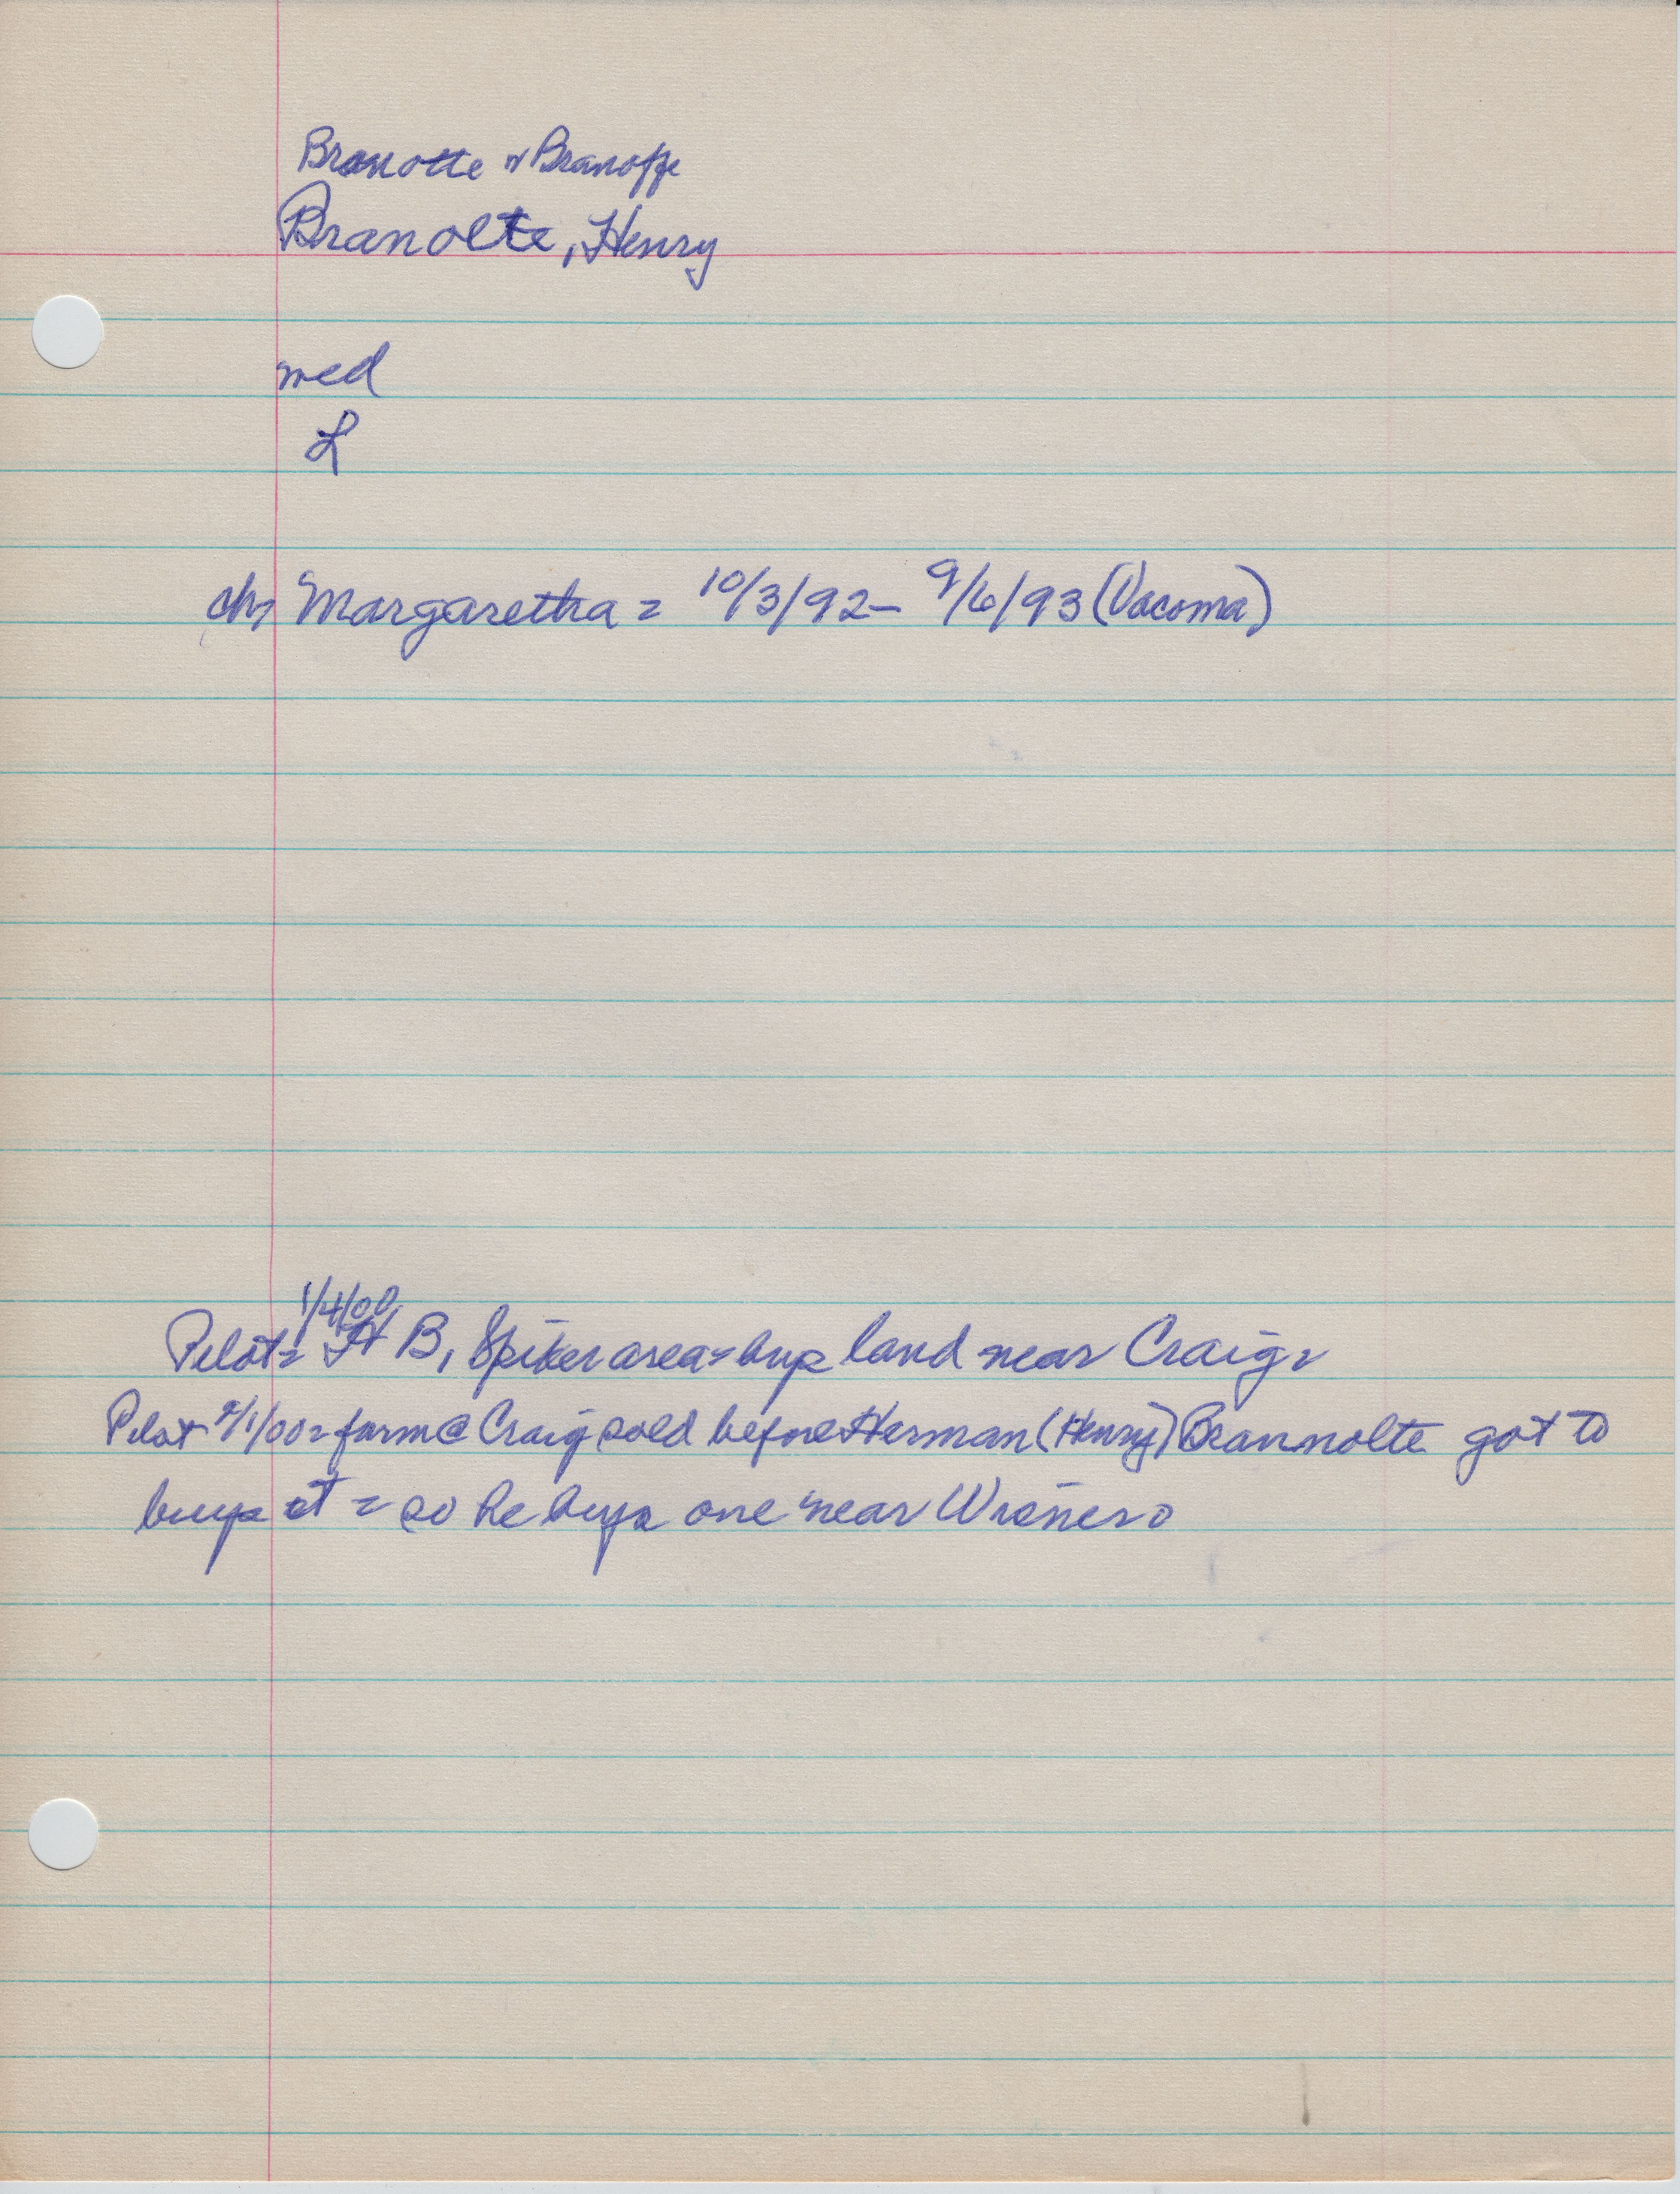 Branotte or Branoffe
Branolte, Henry
med
L
ch, Margaretha = 10/3/92 - 9/6/93 (Vacoma)
1/4/00
Pilot = H B, Spiker area = buys land near Craig =
Pilot 2/1/00 = farm @ Craig sold before Herman (Henry) Brannolte got to
buy it = so he buys one near Wisner =